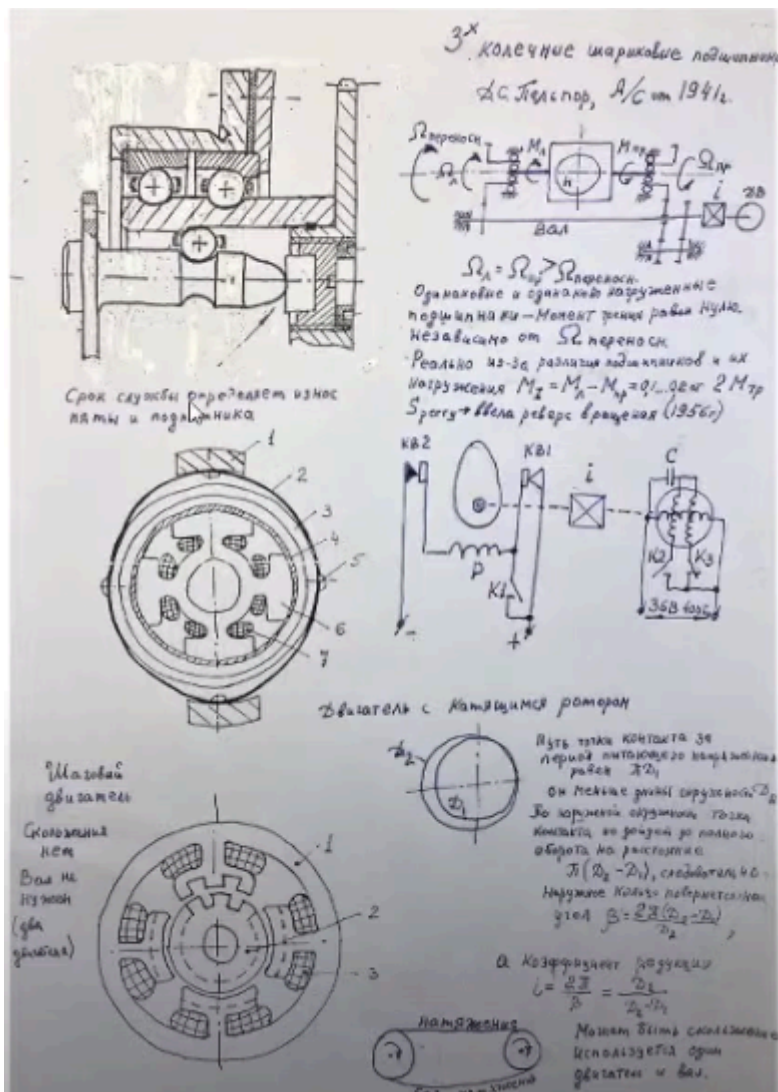 3х колечные шариковые подшипники
Д.С. Пельпор, А/С от 1941г.
Ωпереносн
Ωл
Мл
h
Мпр
Ωпр
i
ДВ
Вал
Ωл = Ωпр > Ωпереносн.
Одинаковые и одинаково нагруженные
подшипники – момент трения равен нулю.
независимо от Ω переносн
Реально из-за различия подшипников и их
нагружения МΣ = Мл – Мпр = 0,1...0,2 от 2 Мтр
Sperry → ввела реверс вращения (1956г)
Срок службы определяет износ
пяты и подпятника
1
2
3
4
5
6
7
КВ2
КВ1
i
С
Р
К1
К2
К3
-
+
36В 400Гц
Двигатель с катящимся ротором
D2
D1
Путь точки контакта за
период питающего напряжения
равен πD1
он меньше длины окружности D2
По наружной окружности точка
контакта не дойдет до полного
оборота на расстояние
π(D2 – D1), следовательно
наружное кольцо повернется на
угол β = 2π(D2–D1)/D2,
а коэффициент редукции
i = 2π/β = D2/(D2–D1)
Шаговый
двигатель
Скольжения
нет
Вал не
нужен
(два
двигателя)
1
2
3
натяжение
Может быть скольжение
используется один
двигатель и вал.